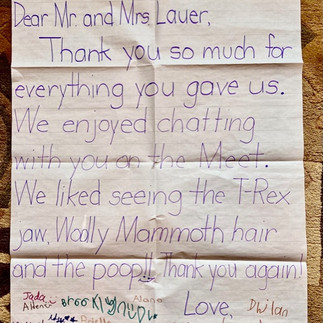 Dear Mr. and Mrs. Lauer,
Thank you so much for
everything you gave us.
We enjoyed chatting
with you on the Meet.
We liked seeing the T-Rex
jaw, Woolly Mammoth hair
and the poop!! Thank you again!
Love,
Jada
Alana
Brooklyn
Dwilan